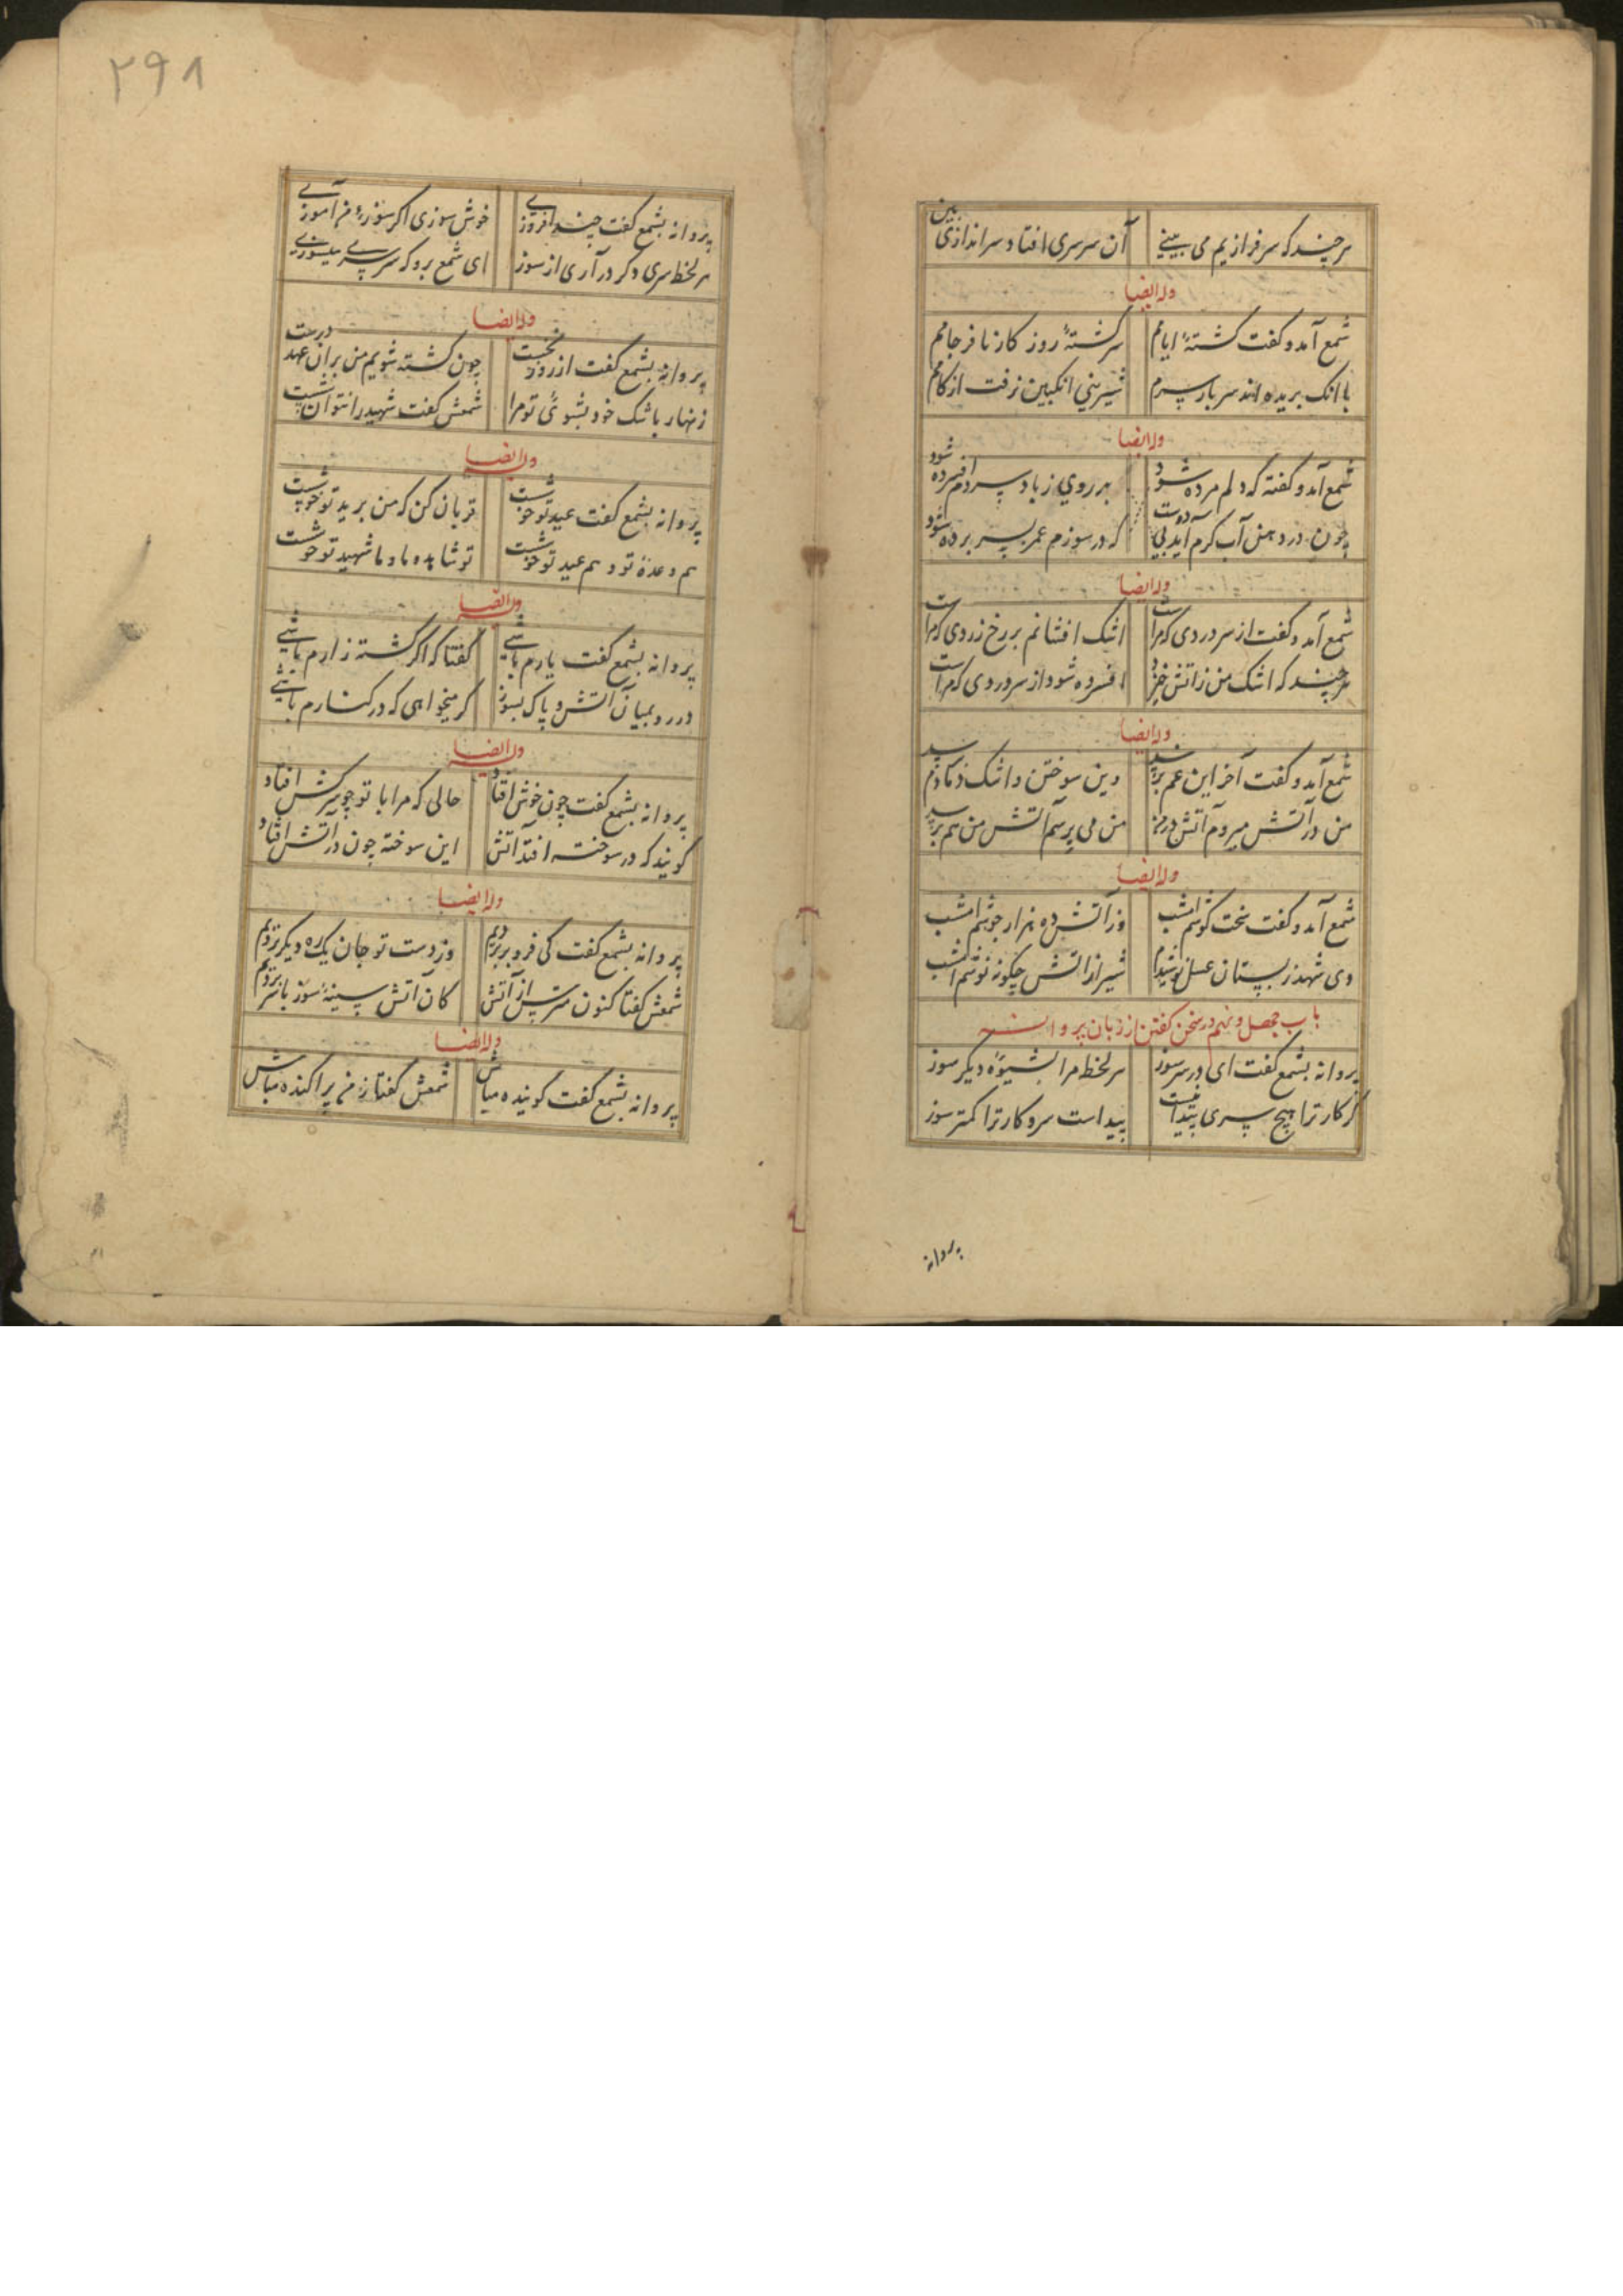 هر چند که سرفرازیم می بینی آن سرسری افتاد و سراندازی بین
وله ایضا
شمع آمد و گفت کشتهٔ ایامم سرگشتهٔ روزگار نافرجامم
با آنک بریده اند سر بار سرم شیرینی انگبین نرفت از کامم
وله ایضا
شمع آمد و گفته که دلم مرده شود هر روی ز باد سردم افسرده شود
چون در دهنش آب گرم آید که در سوزم عمر بسر برده شود
وله ایضا
شمع آمد و گفت از سر دردی که مراست اشک افشانم بر رخ زردی که مراست
هر چند که اشک من ز آتش خیزد افسرده شود از سر دردی که مراست
وله ایضا
شمع آمد و گفت آخر این غم برسد وین سوختن و اشک دمادم برسد
من در آتش میروم آتش در من من می برسم آتش من هم برسد
وله ایضا
شمع آمد و گفت سخت کوشم امشب وز آتش ده هزار جوشم امشب
دی شهد ز پستان عسل نوشیدم شیر از آتش چگونه نوشم امشب
باب چهل و نهم در سخن گفتن از زبان پروانه
پروانه بشمع گفت ای در سر سوز هر لحظه مرا بشیوهٔ دیگر سوز
گر کار ترا هیچ سری پیدا نیست پیداست سر و کار ترا کمتر سوز
پروانه
۲۹۸
پروانه بشمع گفت چند افروزی خوش سوزی اگر سوز ز من آموزی
هر لحظه سری دگر در آری از سوز ای شمع برو که سرسری میسوزی
وله ایضا
پروانه بشمع گفت از روز نخست چون کشته شویم من بر آن عهد درست
زنهار باشک خود بشوئی تو مرا شمعش گفت شهید را نتوان شست
وله ایضا
پروانه بشمع گفت عید تو خوشست قربان کن که من برید تو خوشست
هم وعدهٔ تو و هم عید تو خوشست تو شاهد و ما و ما شهید تو خوشست
وله ایضا
پروانه بشمع گفت یارم باشی گفتا که اگر کشته زارم باشی
در رو بمیان آتش و پاک بسوز گر میخواهی که در کنارم باشی
وله ایضا
پروانه بشمع گفت چون خوش افتاد حالی که مرا با تو چو سرکش افتاد
گویند که در سوخته افتد آتش این سوخته چون در آتش افتاد
وله ایضا
پروانه بشمع گفت کی فر و بردیم وز دست تو جان یک ره دیگر بردیم
شمعش گفتا کنون مترس از آتش کان آتش سینه سوز با سر بردیم
وله ایضا
پروانه بشمع گفت گوینده مباش شمعش گفتا ز من پراکنده مباش